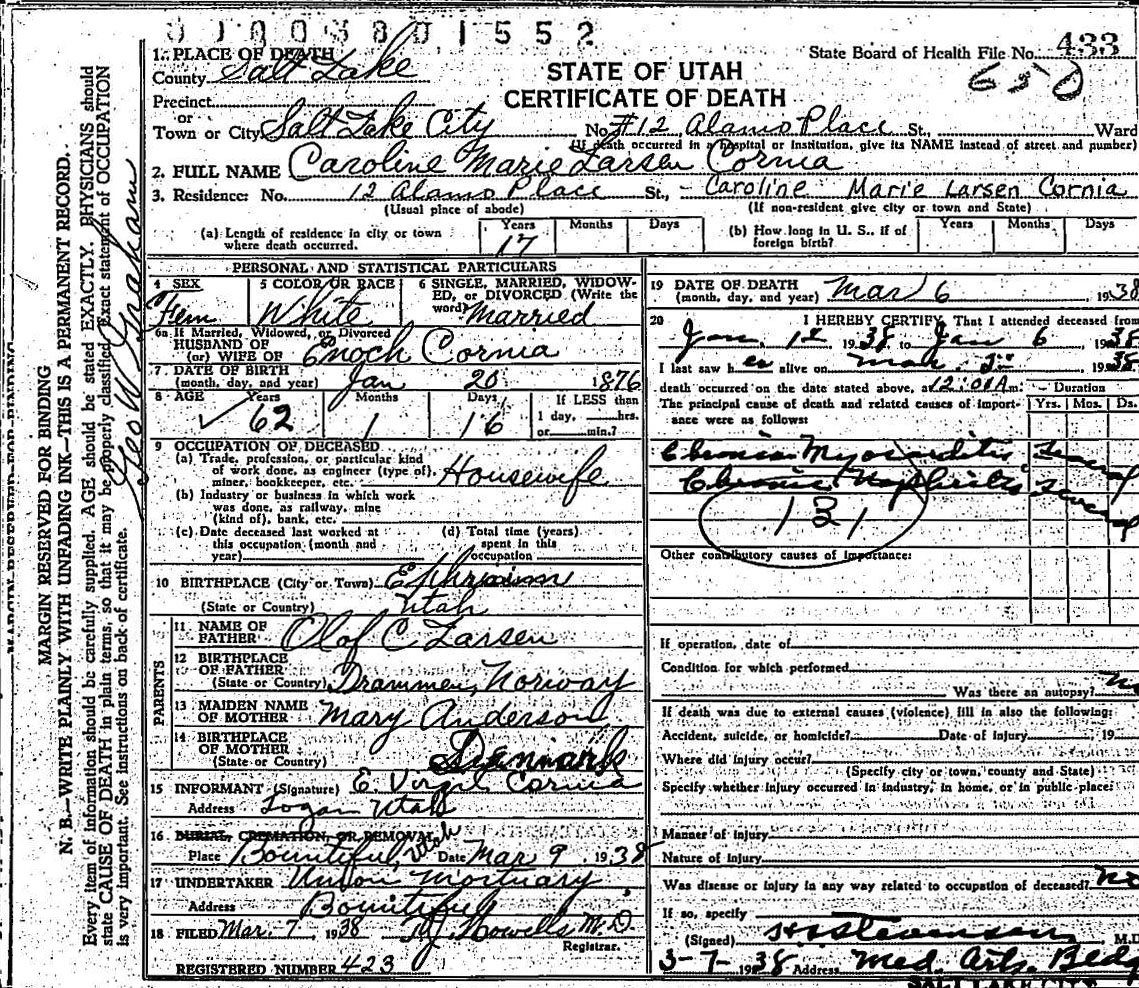 0100380 1552
1. PLACE OF DEATH
County Salt Lake
State Board of Health File No. 433
STATE OF UTAH
CERTIFICATE OF DEATH
650
Precinct
or
Town or City Salt Lake City No. #12 Alamo Place St., Ward
(If death occurred in a hospital or institution, give its NAME instead of street and number)
2. FULL NAME Caroline Marie Larsen Cornia
3. Residence: No. 12 Alamo Place St., Caroline Marie Larsen Cornia
(Usual place of abode) (If non-resident give city or town and State)
(a) Length of residence in city or town where death occurred. Years 17 Months Days
(b) How long in U. S., if of foreign birth? Years Months Days
PERSONAL AND STATISTICAL PARTICULARS
4 SEX Fem
5 COLOR OR RACE White
6 SINGLE, MARRIED, WIDOW-
ED, or DIVORCED (Write the
word) Married
6a If Married, Widowed, or Divorced
HUSBAND OF
(or) WIFE OF Enoch Cornia
7 DATE OF BIRTH
(month, day, and year) Jan 20 1876
8 AGE Years 62 Months 1 Days 16
If LESS than
1 day, hrs.
or min.?
9 OCCUPATION OF DECEASED
(a) Trade, profession, or particular kind
of work done, as engineer (type of),
miner, bookkeeper, etc. Housewife
(b) Industry or business in which work
was done, as railway, mine
(kind of), bank, etc.
(c) Date deceased last worked at
this occupation (month and
year)
(d) Total time (years)
spent in this
occupation
10 BIRTHPLACE (City or Town) Ephraim
(State or Country) Utah
PARENTS
11 NAME OF
FATHER Olof C Larsen
12 BIRTHPLACE
OF FATHER
(State or Country) Drammen, Norway
13 MAIDEN NAME
OF MOTHER Mary Anderson
14 BIRTHPLACE
OF MOTHER
(State or Country) Denmark
15 INFORMANT (Signature) E. Virgil Cornia
Address Logan Utah
16 BURIAL, CREMATION, OR REMOVAL
Place Bountiful, Utah Date Mar 9 1938
17 UNDERTAKER Union Mortuary
Address Bountiful
18 FILED Mar. 7 1938 M.D.
Registrar.
REGISTERED NUMBER 423
19 DATE OF DEATH
(month, day, and year) Mar 6 1938
20 I HEREBY CERTIFY, That I attended deceased from
Jan. 12 1938 to Jan 6 1938
I last saw her alive on 1938
death occurred on the date stated above, at 12:01 A m: Duration
The principal cause of death and related causes of import-
ance were as follows: Yrs. Mos. Ds.
Chronic Myocarditis Several
Chronic Nephritis Several
131
Other contributory causes of importance:
If operation, date of
Condition for which performed
Was there an autopsy? No
If death was due to external causes (violence) fill in also the following:
Accident, suicide, or homicide? Date of Injury , 19
Where did injury occur?
(Specify city or town, county and State)
Specify whether injury occurred in industry, in home, or in public place:
Manner of injury
Nature of Injury
Was disease or injury in any way related to occupation of deceased? No
If so, specify
(Signed) M.D.
3-7-1938 Address Med. Arts. Bldg
SALT LAKE CITY
MARGIN RESERVED FOR BINDING
MARGIN RESERVED FOR BINDING
N. B.—WRITE PLAINLY WITH UNFADING INK—THIS IS A PERMANENT RECORD.
Every item of information should be carefully supplied. AGE should be stated EXACTLY. PHYSICIANS should
state CAUSE OF DEATH in plain terms, so that it may be properly classified. Exact statement of OCCUPATION
is very important. See instructions on back of certificate.
Geo W Graham